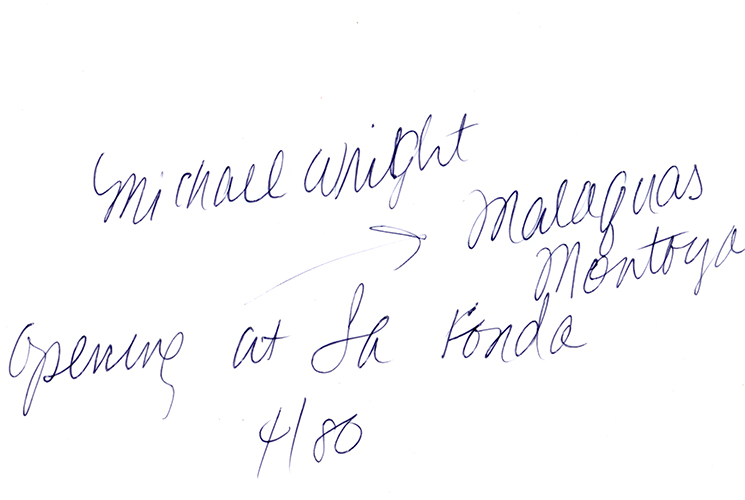 Michael Wright
Malaquas
Montoya
Opening at La Fonda
4/80